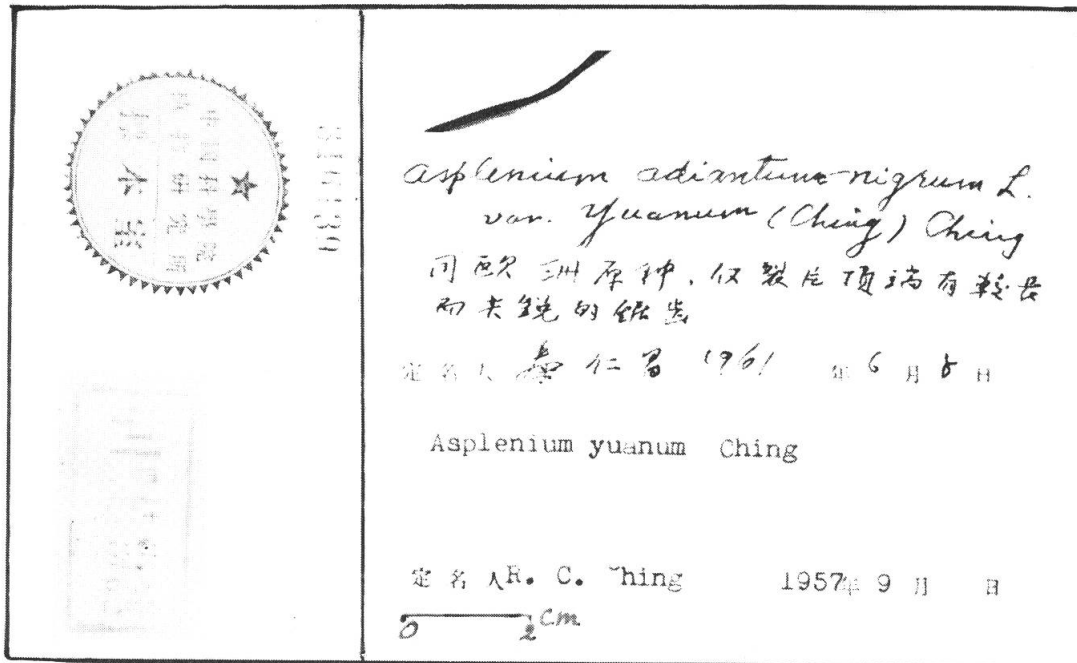 中国科学院
植物研究所
标本室
Asplenium adiantum-nigrum L.
var. Yuanum (Ching) Ching
同欧洲原种，仅裂片顶端有较长
而尖锐的锯齿
定名人 秦仁昌 1961 年 6 月 8 日
Asplenium yuanum Ching
定名人 R. C. Ching 1957年 9 月 日
0 2 cm